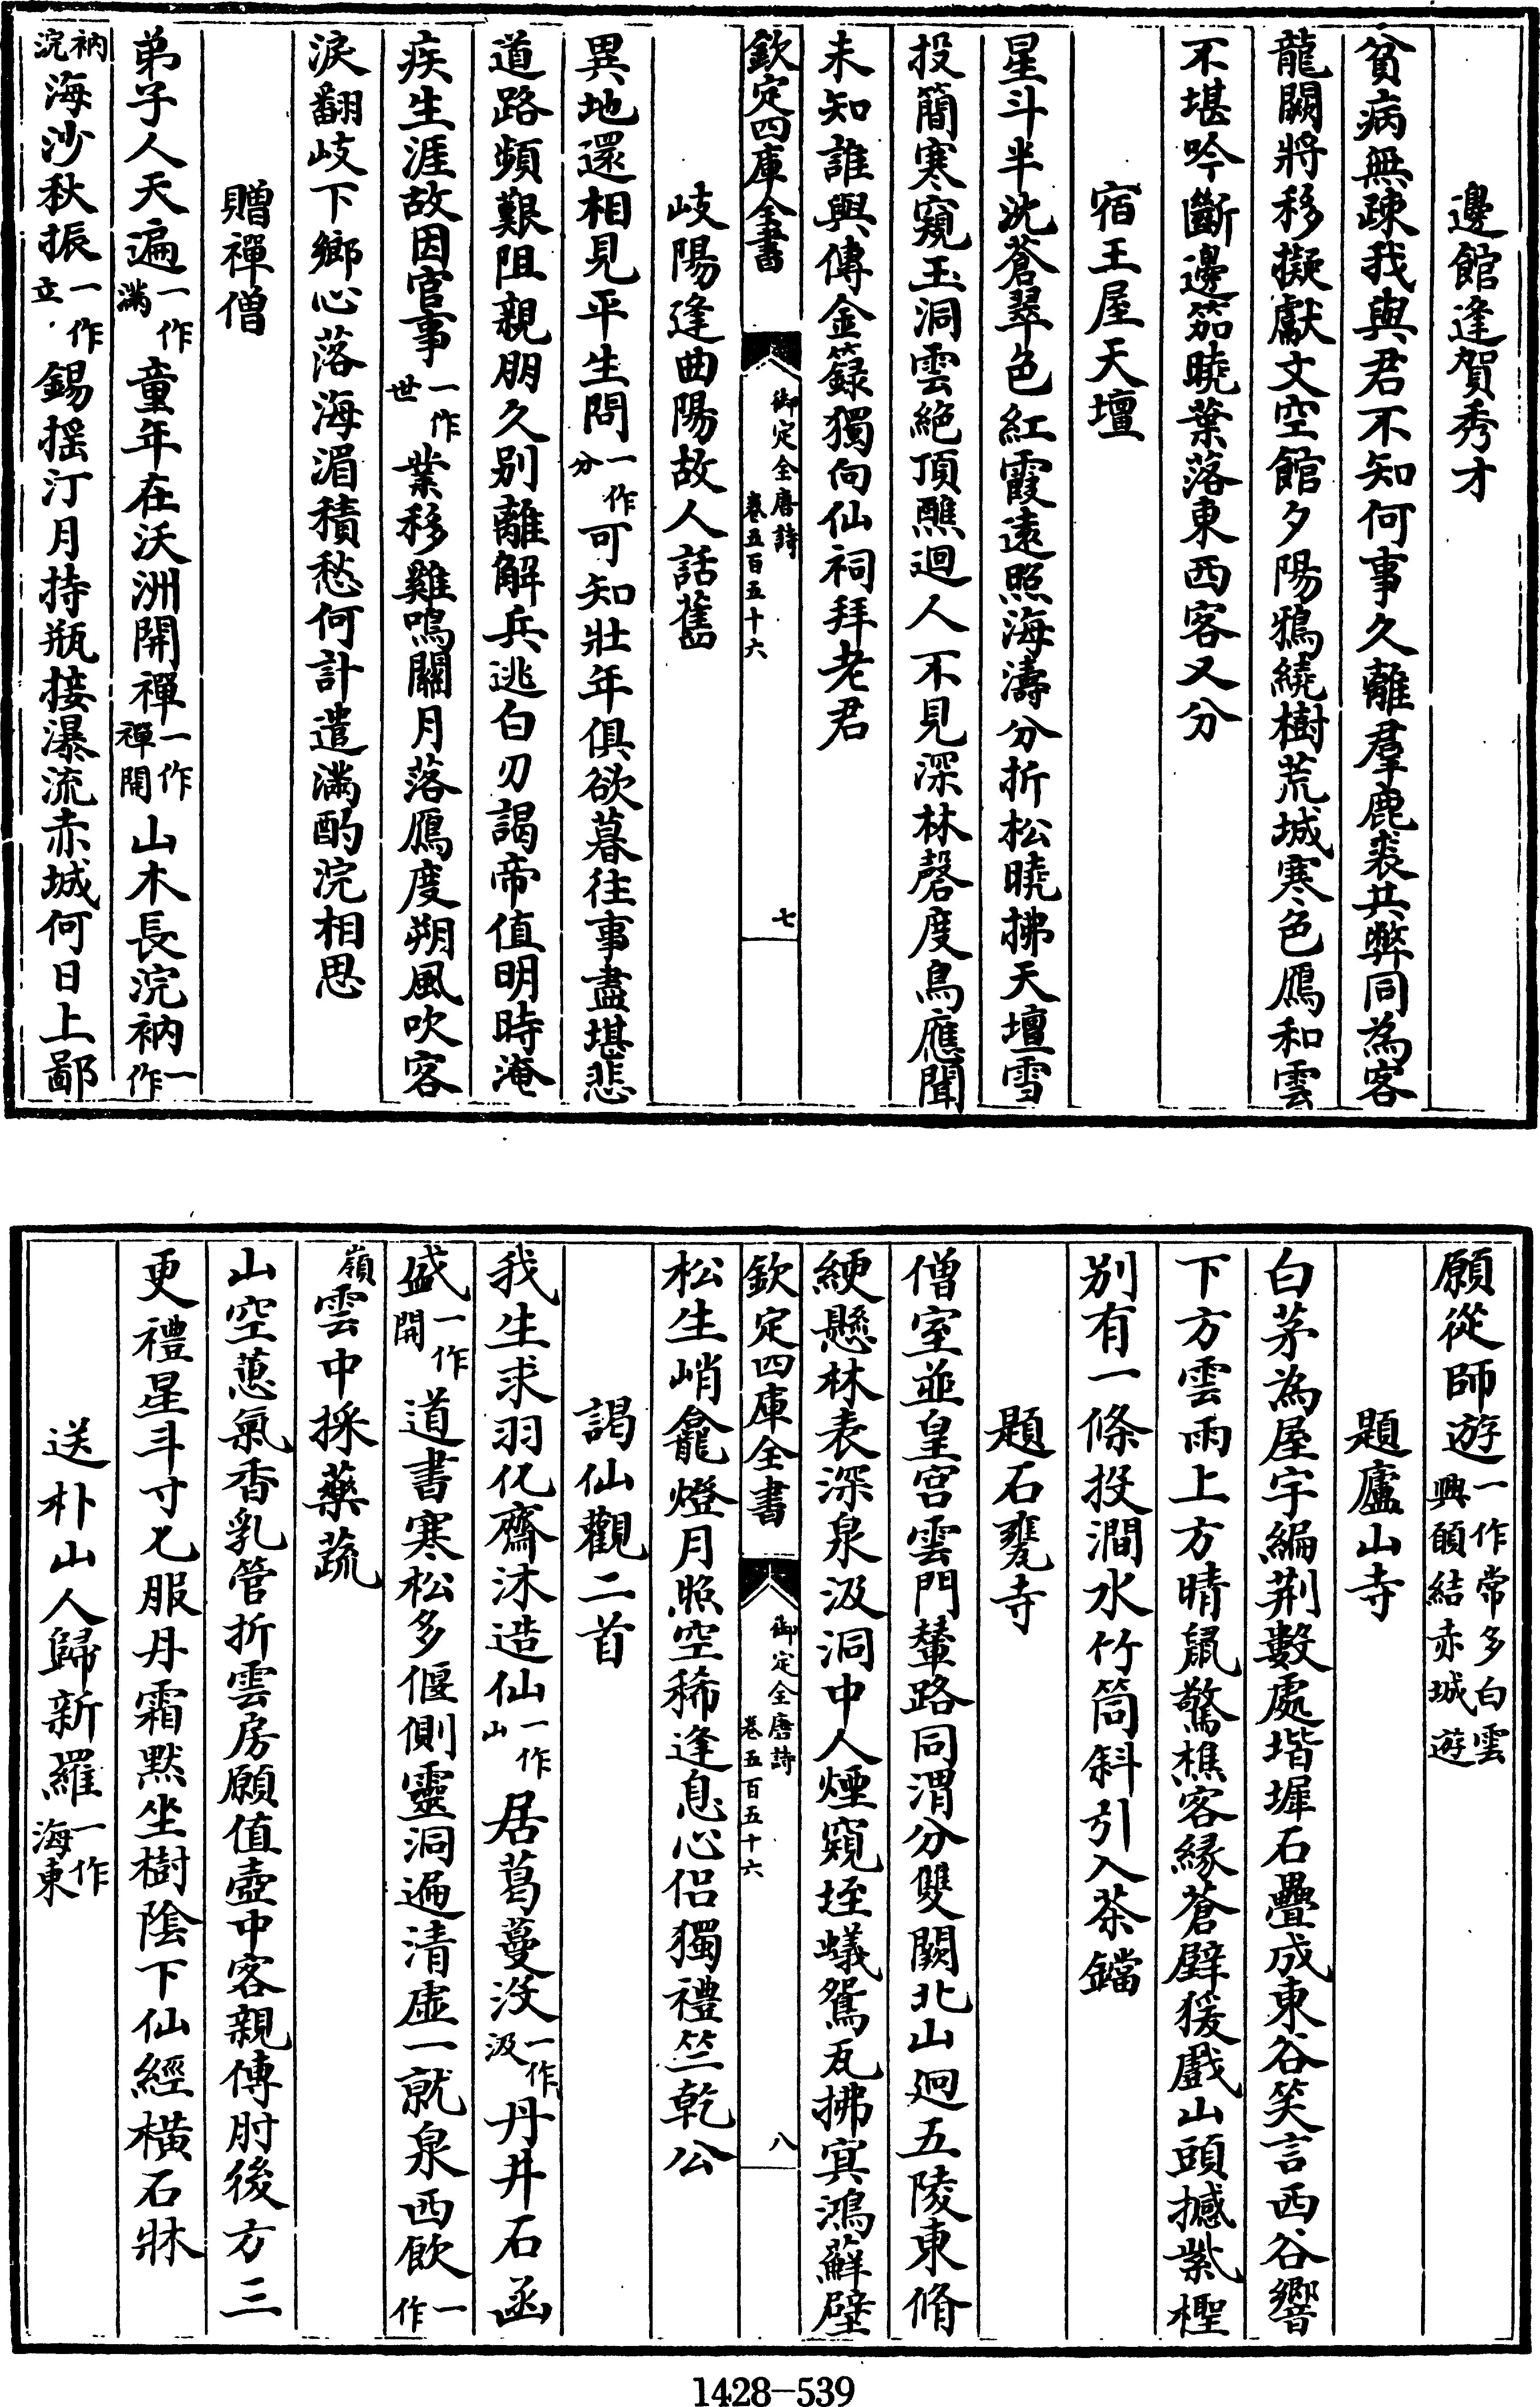 邊館逢賀秀才
貧病無疎我與君不知何事久離羣鹿裘共弊同為客
龍闕將移擬獻文空館夕陽鴉繞樹荒城寒色鴈和雲
不堪吟斷邊笳曉葉落東西客又分
宿王屋天壇
星斗半沈蒼翠色紅霞遠照海濤分折松曉拂天壇雪
投簡寒窺玉洞雲絶頂醮迴人不見深林磬度鳥應聞
未知誰與傳金籙獨向仙祠拜老君
欽定四庫全書
御定全唐詩
卷五百五十六
七
岐陽逢曲陽故人話舊
異地還相見平生問一作分可知壯年俱欲暮往事盡堪悲
道路頻艱阻親朋久别離解兵逃白刃謁帝值明時淹
疾生涯故因官事一作世業移雞鳴關月落鴈度朔風吹客
淚翻岐下鄉心落海湄積愁何計遣滿酌浣相思
贈禪僧
弟子人天遍一作滿童年在沃洲開禪一作禪開山木長浣衲一作
衲浣海沙秋振一作立錫揺汀月持瓶接瀑流赤城何日上鄙
願從師遊一作常多白雲興願結赤城遊
題廬山寺
白茅為屋宇編荆數處堦墀石疊成東谷笑言西谷響
下方雲雨上方晴鼠驚樵客縁蒼壁猨戲山頭撼紫檉
别有一條投澗水竹筒斜引入茶鐺
題石甕寺
僧室並皇宫雲門輦路同渭分雙闕北山迥五陵東脩
綆懸林表深泉汲洞中人煙窺垤蟻鴛瓦拂㝠鴻蘚壁
欽定四庫全書
御定全唐詩
卷五百五十六
八
松生峭龕燈月照空稀逢息心侣獨禮竺乾公
謁仙觀二首
我生求羽化齋沐造仙一作山居葛蔓没一作汲丹井石函
盛一作開道書寒松多偃側靈洞遍清虚一就泉西飲一作
嶺雲中採藥蔬
山空蕙氣香乳管折雲房願值壺中客親傳肘後方三
更禮星斗寸匕服丹霜黙坐樹隂下仙經横石牀
送朴山人歸新羅一作海東
1428—539